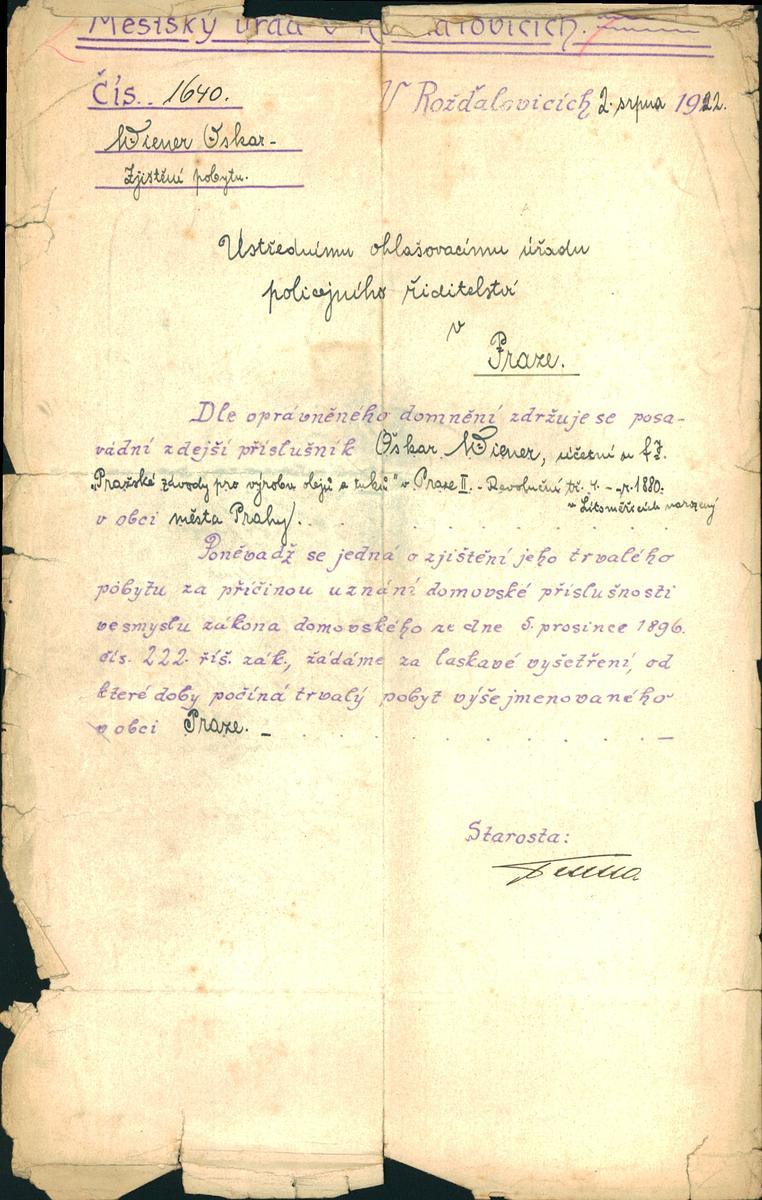 Městský úřad v Rožďalovicích.
Čís. 1640.
V Rožďalovicích 2. srpna 1922.
Wiener Oskar-
Zjištění pobytu.
Ústřednímu ohlašovacímu úřadu
policejního řiditelství
v
Praze.
Dle oprávněného domnění zdržuje se posa-
vádní zdejší příslušník Oskar Wiener, účetní u fy.
"Pražské závody pro výrobu olejů a tuků" v Praze II. - Revoluční tř. 4. - r. 1880.
v Litoměřicích narozený
v obci města Prahy.
Poněvadž se jedná o zjištění jeho trvalého
pobytu za příčinou uznání domovské příslušnosti
ve smyslu zákona domovského ze dne 5. prosince 1896.
čís. 222. říš. zák., žádáme za laskavé vyšetření, od
které doby počíná trvalý pobyt výše jmenovaného
v obci Praze.
Starosta: